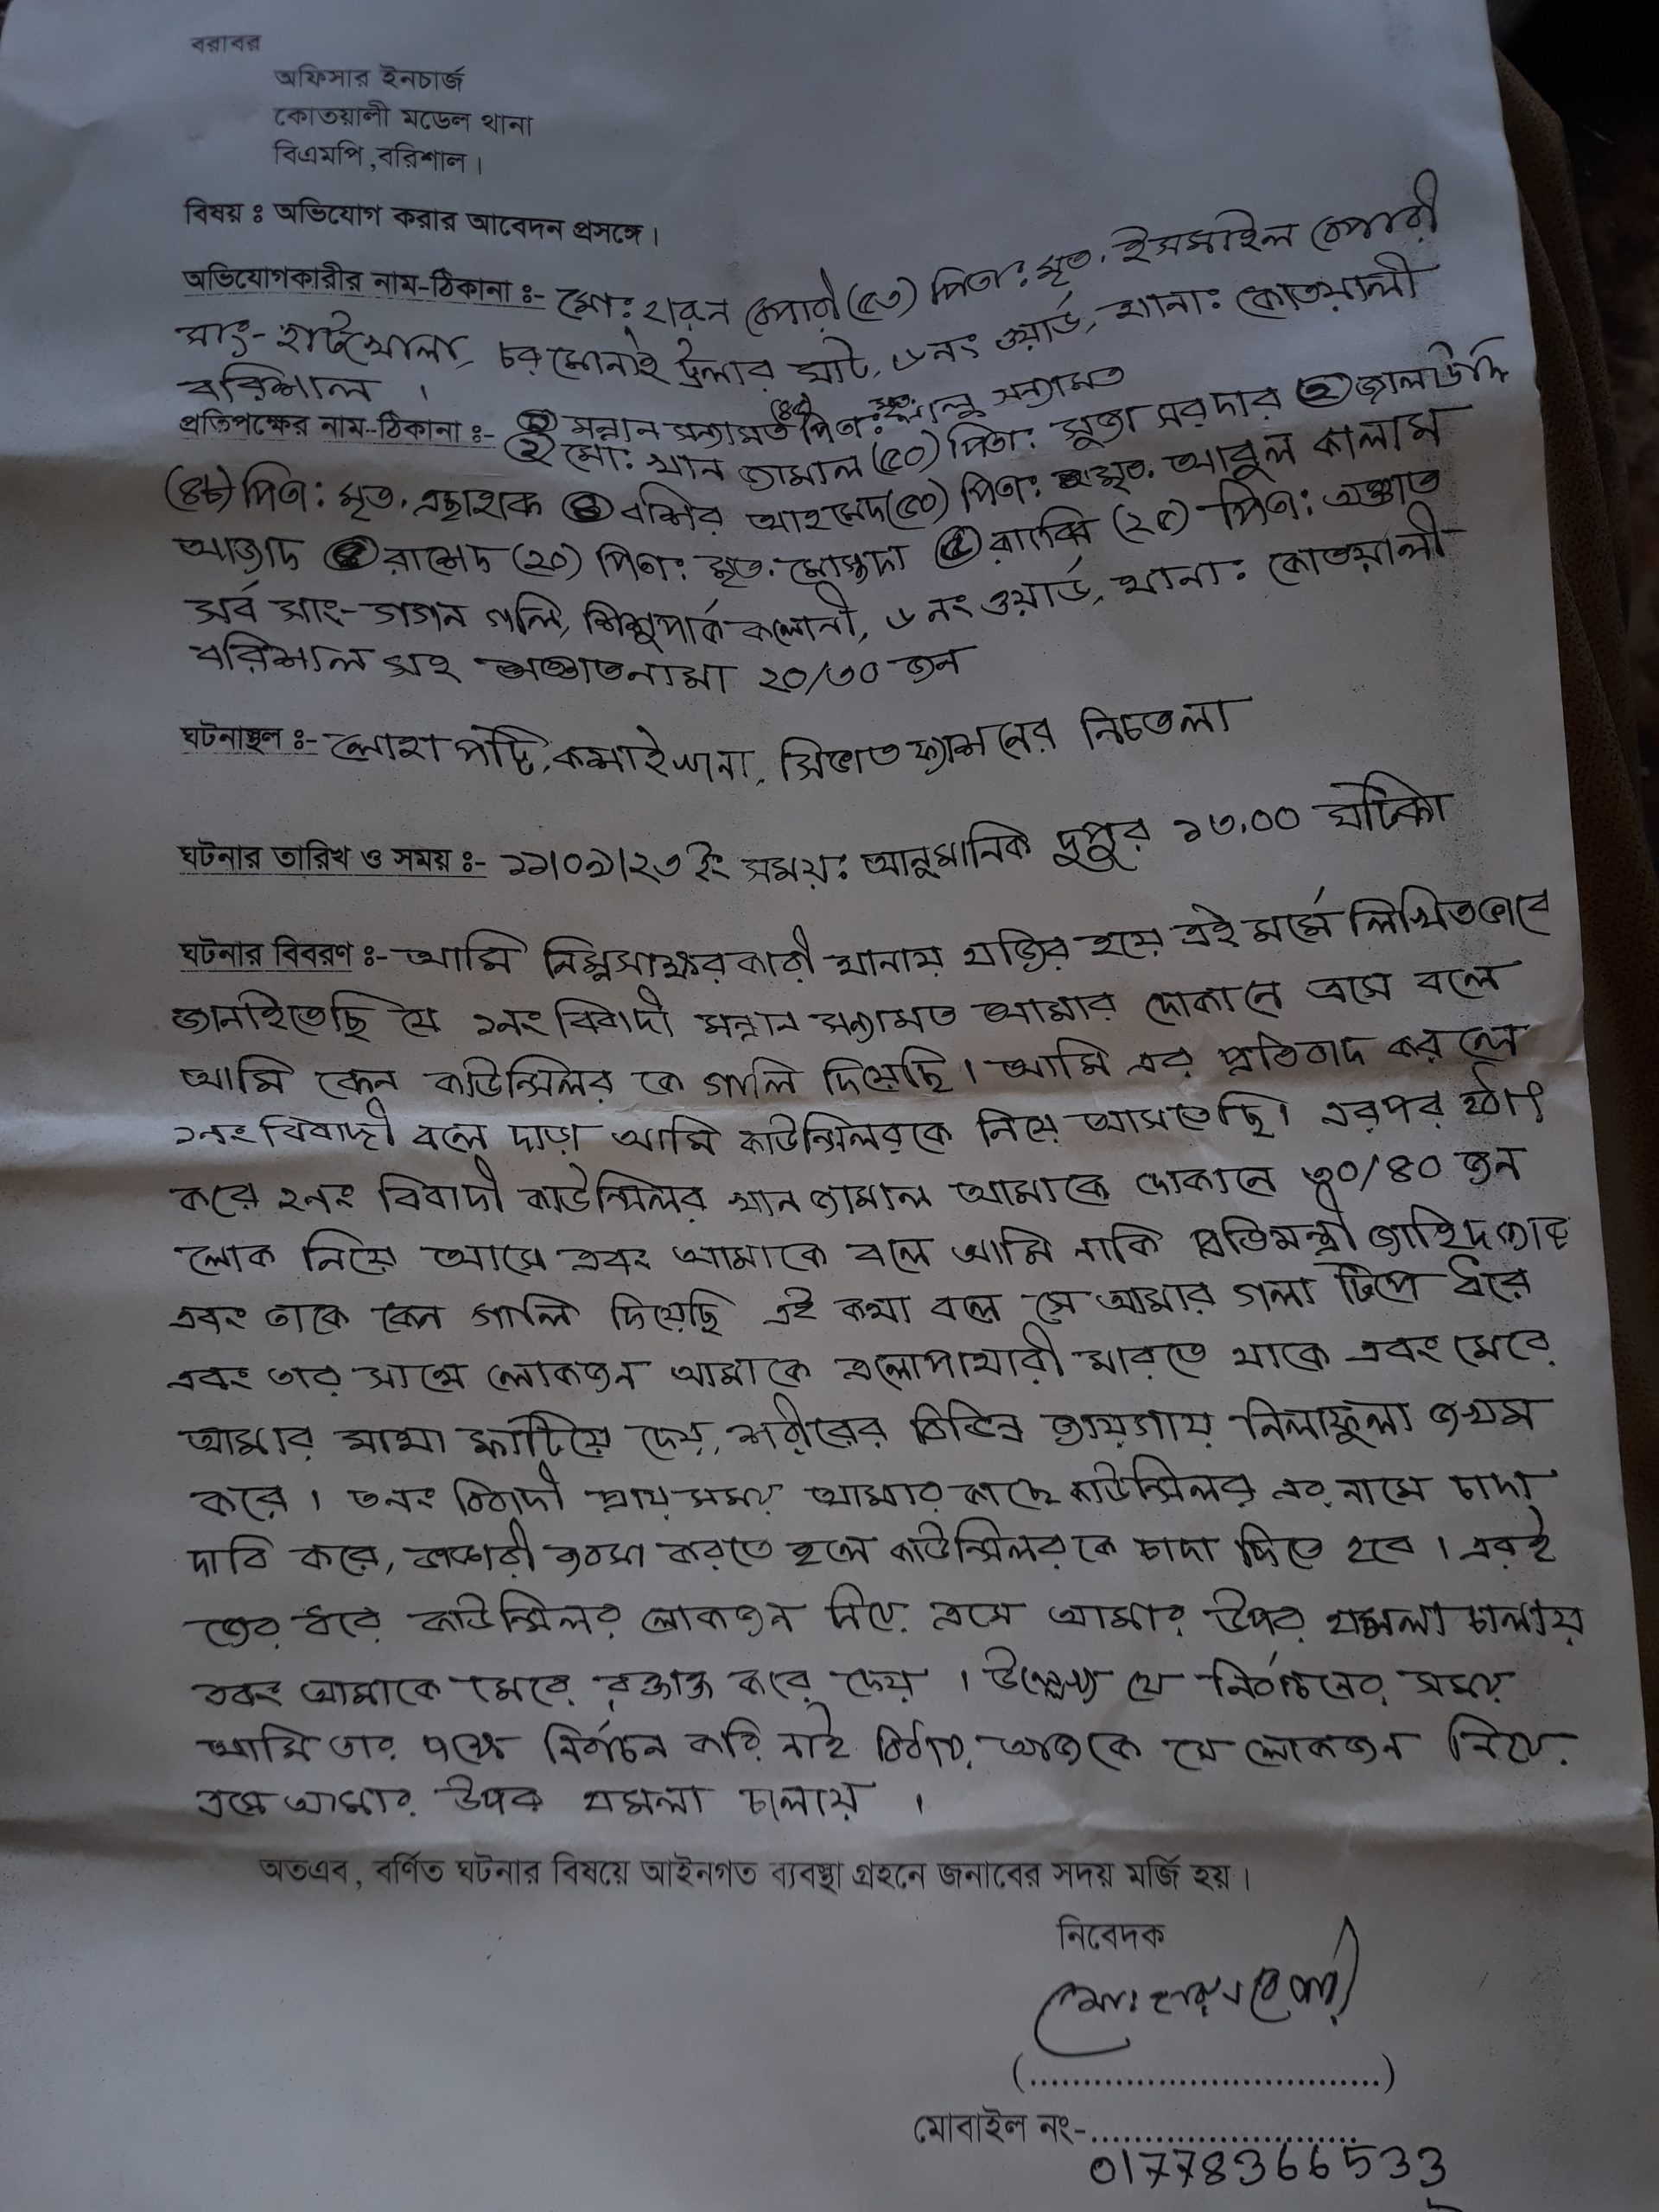 বরাবর
অফিসার ইনচার্জ
কোতয়ালী মডেল থানা
বিএমপি,বরিশাল।
বিষয় ঃ অভিযোগ করার আবেদন প্রসঙ্গে।
অভিযোগকারীর নাম-ঠিকানা ঃ- মো: হারুন বেপারী (৫৩) পিতা: মৃত. ইসমাইল বেপারী
সাং- হাটখোলা, চরমোনাই ট্রলার ঘাট, ৬নং ওয়ার্ড, থানা: কোতয়ালী
বরিশাল ।
প্রতিপক্ষের নাম-ঠিকানা ঃ- ① মন্নান সন্যামত পিতা: সন্যামত
② মো: খান জামাল (৫০) পিতা: সরদার ③ জালউদ্দি
(৪৮) পিতা: মৃত. এছাহাক ④ বশির আহমেদ (৫০) পিতা: মৃত. আবুল কালাম
আজাদ রাশেদ (২০) পিতা: মৃত. মোস্তফা (২৫) পিতা: অজ্ঞাত
সর্ব সাং- গগন গলি, শিশুপার্ক কলোনী, ৬নং ওয়ার্ড, থানা: কোতয়ালী
বরিশাল সহ অজ্ঞাতনামা ২০/৩০ জন
ঘটনাস্থল ঃ- লোহা পট্টি, কসাইখানা, ফ্যাশনের নিচতলা
ঘটনার তারিখ ও সময় ঃ- ১১/০৯/২৩ ইং সময়: আনুমানিক দুপুর ১৩.০০ ঘটিকা
ঘটনার বিবরণ ঃ- আমি নিম্নসাক্ষরকারী থানায় হাজির হয়ে এই মর্মে লিখিতভাবে
জানাইতেছি যে ১নং বিবাদী মন্নান সন্যামত আমার দোকানে এসে বলে
আমি কেন কাউন্সিলর কে গালি দিয়েছি। আমি এর প্রতিবাদ করলে
১নং বিবাদী বলে দাড়া আমি কাউন্সিলরকে নিয়ে আসতেছি। এরপর হঠাৎ
করে ২নং বিবাদী কাউন্সিলর খান জামাল আমাকে দোকানে ৩০/৪০ জন
লোক নিয়ে আসে এবং আমাকে বলে আমি নাকি প্রতিমন্ত্রী জাহিদ
এবং তাকে কেন গালি দিয়েছি এই কথা বলে সে আমার গলা টিপে ধরে
এবং তার সাথে লোকজন আমাকে এলোপাথারী মারতে থাকে এবং মেরে
আমার মাথা ফাটিয়ে দেয়, শরীরের বিভিন্ন জায়গায় নিলাফুলা জখম
করে। ৩নং বিবাদী প্রায় সময় আমার কাছে কাউন্সিলর এর নামে চাদা
দাবি করে, ব্যবসা করতে হলে কাউন্সিলরকে চাদা দিতে হবে। এরই
জের ধরে কাউন্সিলর লোকজন নিয়ে এসে আমার উপর হামলা চালায়
এবং আমাকে মেরে রক্তাক্ত করে দেয় । উল্লেখ্য যে নির্বাচনের সময়
আমি তার পক্ষে নির্বাচন করি নাই বিধায়, আজকে সে লোকজন নিয়ে
এসে আমার উপর হামলা চালায় ।
অতএব, বর্ণিত ঘটনার বিষয়ে আইনগত ব্যবস্থা গ্রহনে জনাবের সদয় মর্জি হয়।
নিবেদক
মোঃ হারুন বেপারী
(................................)
মোবাইল নং-........................
01778366533